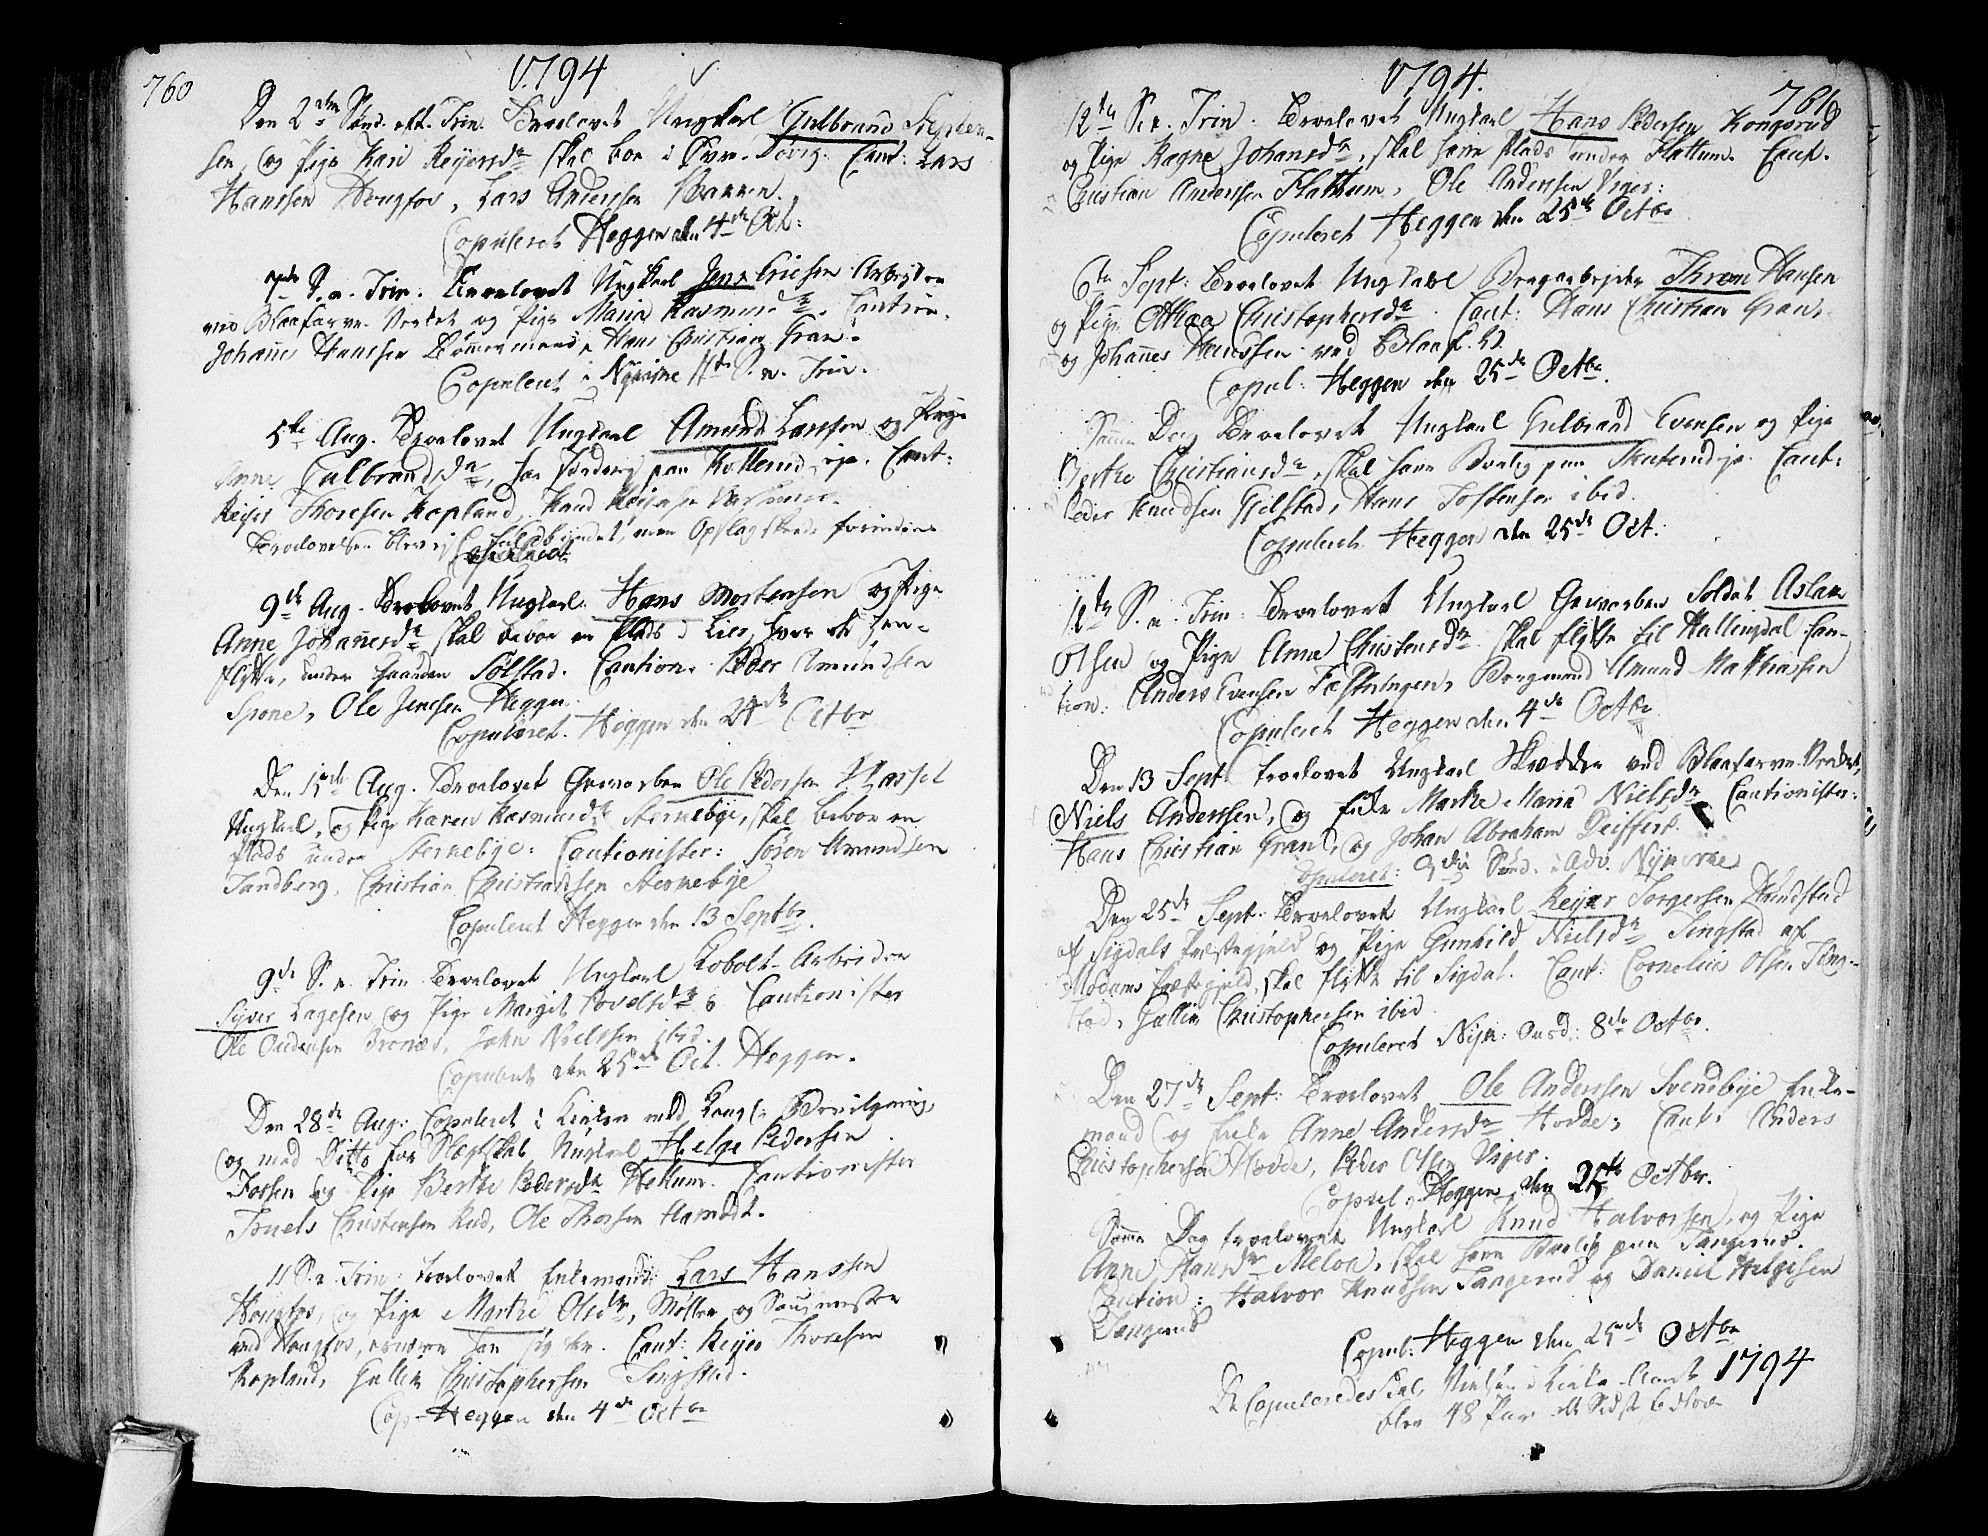 760
1794
Den 2den Sønd. eft. Trin. Troelovet Ungkarl Gulbrand Stephen-
sen, og Pige Kari Reijersdr skal boe i Cant: Lars
Hanssen Hougfos, Lars Anderssen
Copuleret Heggen den 4de Oct:
7de S. a. Trin. Troelovet Ungkarl Jens Ericsen Arbeyder
ved Blaafarve Verket og Pige Maria Rasmusdr. Caution.
Johannes Hanssen Tømmermand, Hans Christian Gran.
Copuleret i Nykirke 11te S. a. Trin.
5te Aug. Troelovet Ungkarl Amund Larssen og Pige
Anne Gulbrandsdr, har paa Kollerud eje. Caut:
Reijer Thoresen Kopland,
Troelovelsen blev ej men Opslag skede forinden
Copuleret
9de Aug. Troelovet Ungkarl Hans Mortensen og Pige
Anne Johannesdr skal beboe en Plads i Lier, hvor de hen-
flytte, under Gaarden Solstad. Caution. Peder Amundsen
Spone, Ole Jensen Heggen.
Copuleret Heggen den 24de Octbr
Den 15de Aug. Troelovet Gevorben Ole Pedersen Hassel
Ungkarl, og Pige Karen Rasmusdr Sternebye, skal beboe en
Plads under Sternebye: Cautionister: Sören Amundsen
Sandberg, Christian Christiansen Sternebye
Copuleret Heggen den 13 Septbr.
9de S. a. Trin Troelovet Ungkarl Kobolt-Arbeider
Syver Lagesen og Pige Margit Povelsdr Cautionister
Ole John Nielssen ibid.
Copuleret den 25de Oct. Heggen.
Den 28de Aug: Copuleret i Kirken med Kongl. Bevilgning,
og med Ditto for Slegtskab Ungkarl Helge Pedersen
Fossen og Pige Berthe Pedersdr Hellum. Cautionister
Truels Christensen Rud, Ole Thorsen Hamodt.
11 S. a. Trin: troelovet Enkemand Lars Hanssen
Hougfos, og Pige Marthe Olesdr, Møller og Saugmester
ved Hougfos, Cant: Reijer Thoresen
Kopland, Gullik Christophersen Tingstad.
Cop. Heggen den 4de Octbr
1794.
761
12te S. e. Trin. Troelovet Ungkarl Hans Pedersen Kongsrud
og Pige Ragne Johansdr, skal have Plads under Flattum. Caut.
Christian Anderssen Flattum, Ole Anderssen Viger:
Copuleret Heggen den 25de Octbr
6te Sept: Troelovet Ungkarl Bergarbeyder Thrond Hansen
og Pige Athea Christophersdr. Caut: Hans Christian Gran,
og Johannes Hanssen ved Blaaf. V.
Copul: Heggen den 25de Octbr.
Samme Dag Troelovet Ungkarl Gulbrand Evensen og Pige
Berthe Christiansdr, skal have Bolig paa Skuterud eje. Caut:
Peder Knudsen Gjelstad, Hans Tostensen ibid.
Copuleret Heggen den 25de Oct:
12te S. a. Trin: Troelovet Ungkarl Gevorben Soldat Aslak
Olsen og Pige Anna Christensdr. skal flytte til Hallingdal Cau-
tion: Anders Evensen Fæstningen, Bergmand Amund Mathiasen
Copuleret Heggen den 4de Octbr
Den 13 Sept: troelovet Ungkarl Skrædder ved Blaafarve Verket,
Niels Anderssen, og Enke Marthe Maria Nielsdr Cautionister:
Hans Christian Gran, og Johan Abraham Deiffert.
Copuleret: 3die Sönd. i Adv. Nykirke
Den 25de Sept: Troelovet Ungkarl Reijer Torgersen Skundstad
af Sigdals Præstegjeld og Pige Gunhild Nielsdr Tingstad af
Modums Præstegjeld, skal flytte til Sigdal. Caut: Cornelius Olsen Ting-
stad, Gullik Christophersen ibid
Copuleret Nyk: Onsd: 8de Octbr.
Den 27de Sept: Troelovet Ole Anderssen Svendbye Enke-
mand og Enke Anne Andersdr Hovde; Caut: Anders
Christophersen Hovde, Peder Olsen Viger.
Copul. Heggen den 25de Octbr.
Samme Dag troelovet Ungkarl Knud Halvorsen, og Pige
Anne Hansdr Meloe, skal have Bolig paa Tangerud.
Caution: Halvor Knudsen Tangerud og Daniel Helgesen
Tangerud
Copul: Heggen den 25de Octbr
De Copuleredes Tal i Kirke-Aaret 1794
blev 48 Par